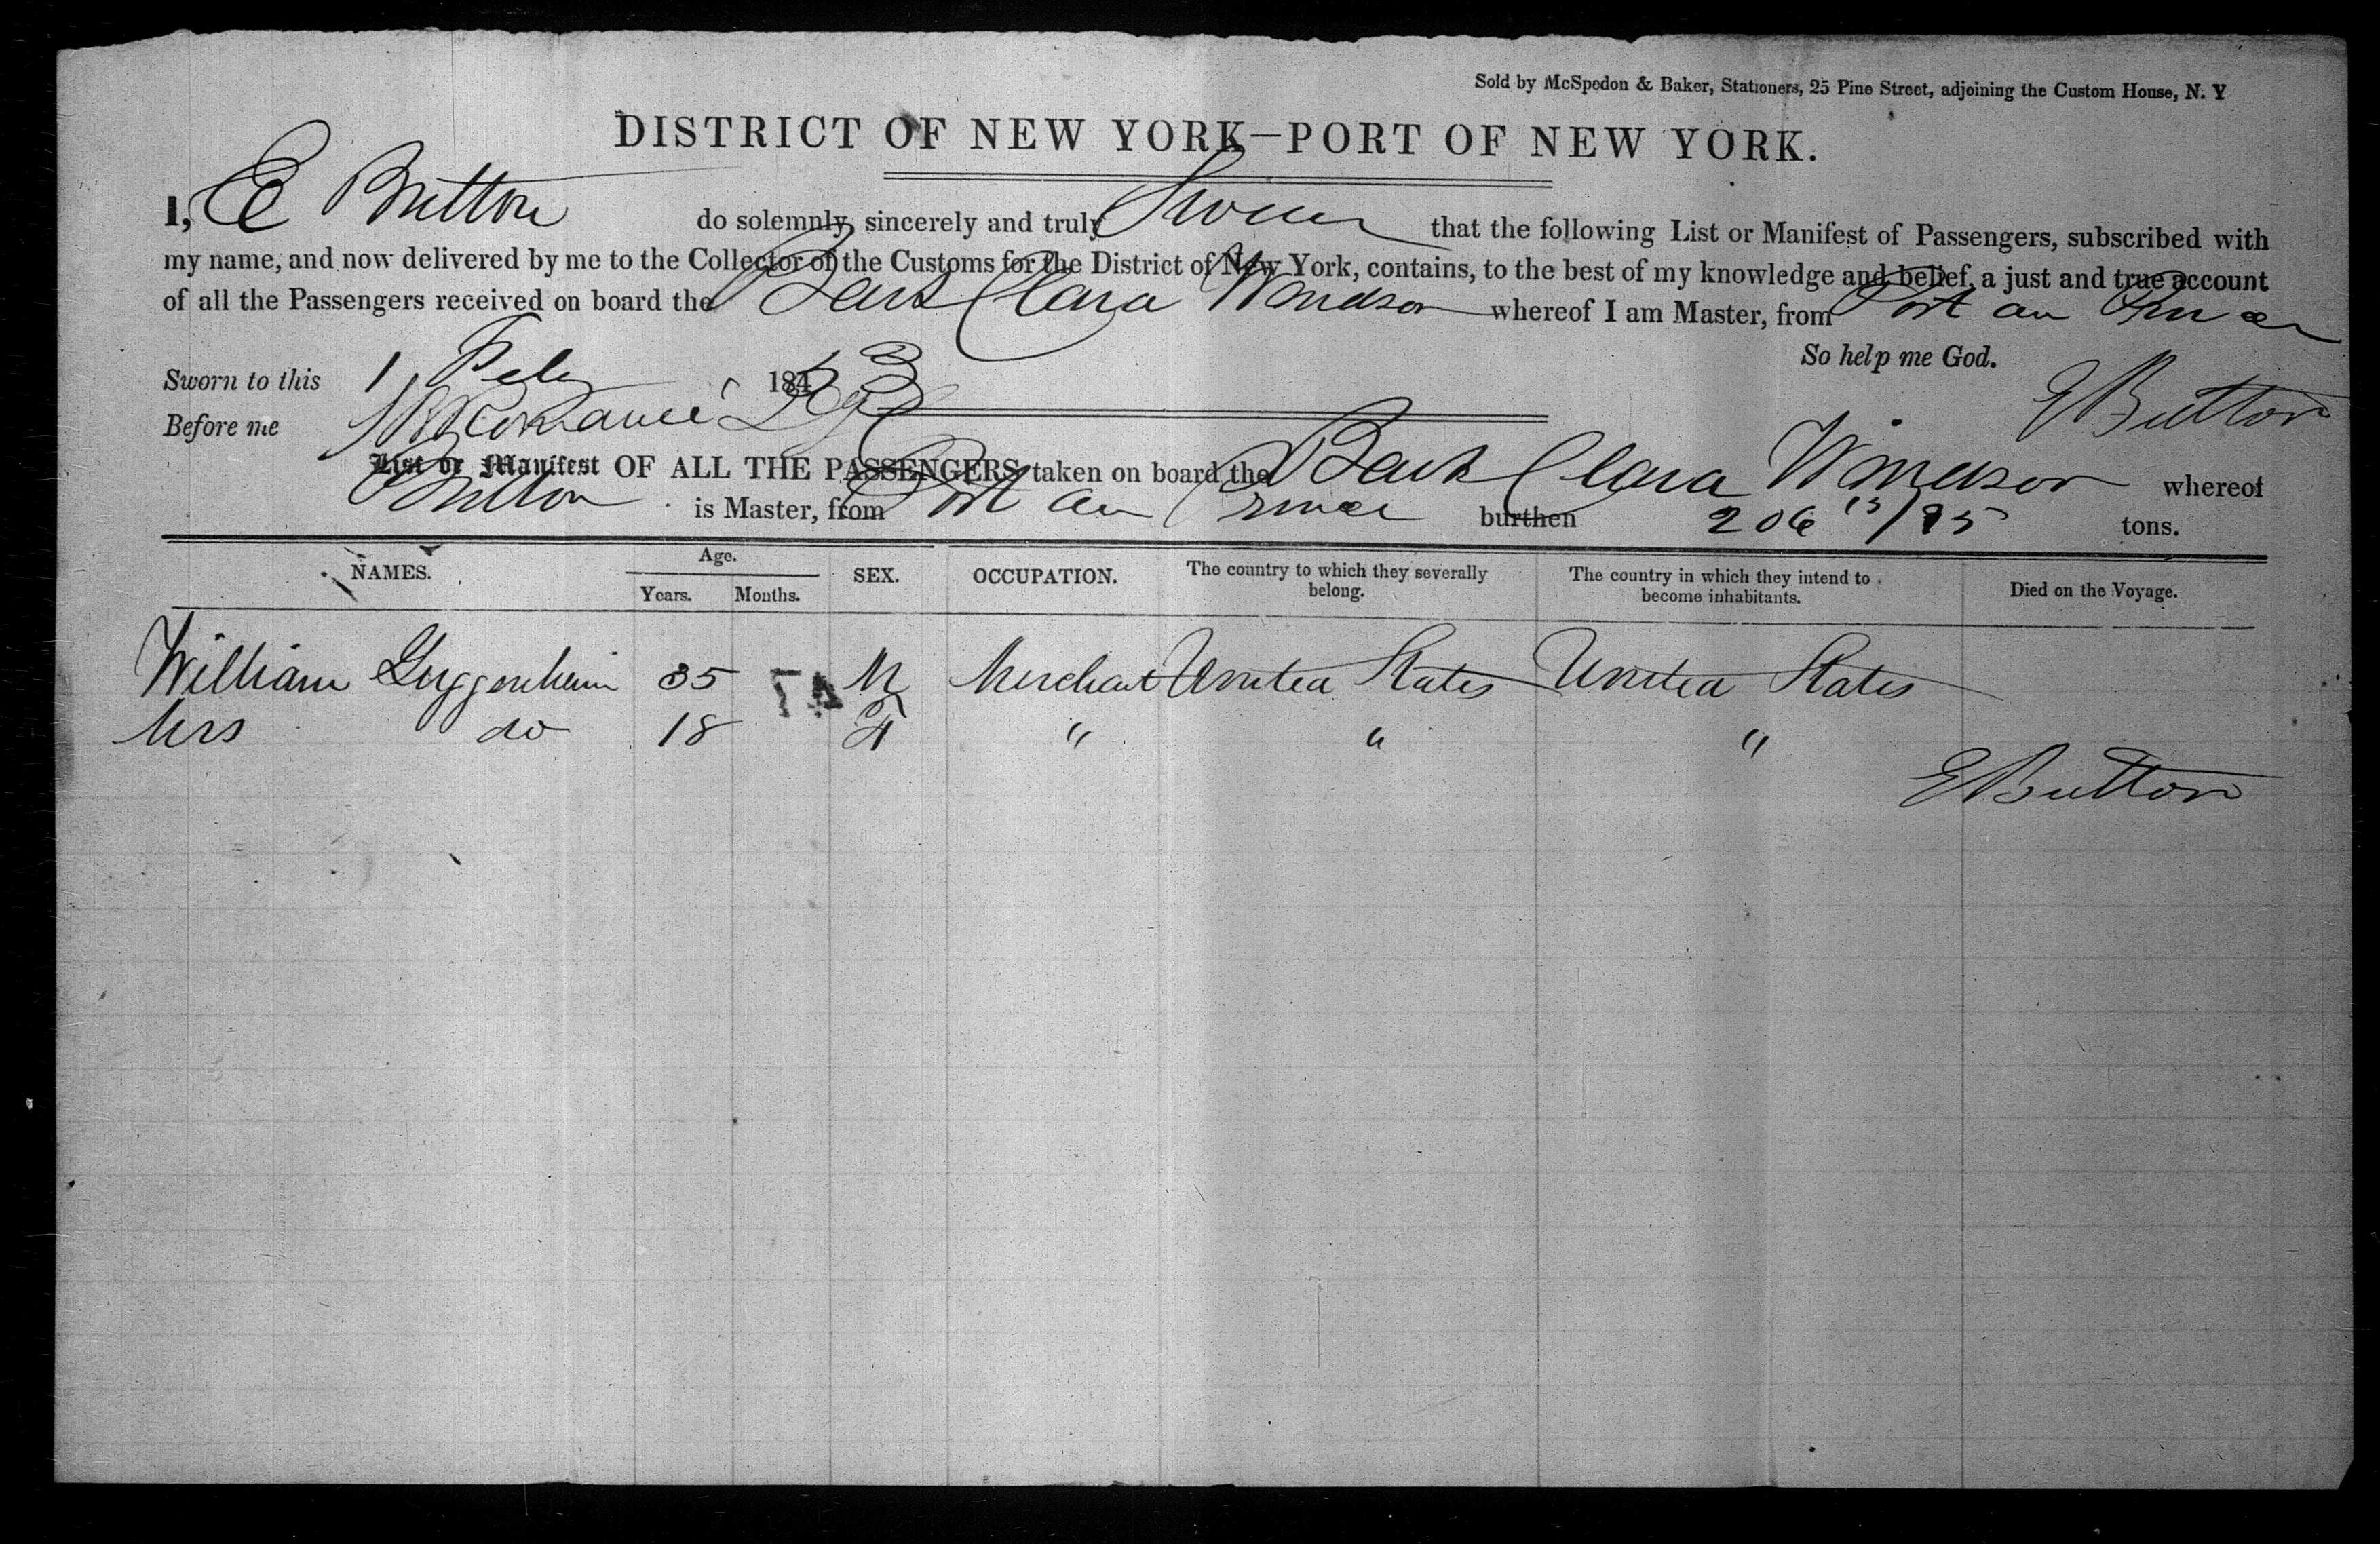 Sold by McSpedon & Baker, Stationers, 25 Pine Street, adjoining the Custom House, N. Y
DISTRICT OF NEW YORK—PORT OF NEW YORK.
I, E Britton do solemnly, sincerely and truly Swear that the following List or Manifest of Passengers, subscribed with
my name, and now delivered by me to the Collector of the Customs for the District of New York, contains, to the best of my knowledge and belief, a just and true account
of all the Passengers received on board the Bark Clara Windsor whereof I am Master, from Port au Prince
So help me God.
Sworn to this 1 Feby 1853
E Britton
Before me
List or Manifest OF ALL THE PASSENGERS taken on board the Bark Clara Windsor whereof
Britton is Master, from Port au Prince burthen 206 15/95 tons.
NAMES. Age. Years. Months. SEX. OCCUPATION. The country to which they severally belong. The country in which they intend to become inhabitants. Died on the Voyage.
William Guggenheim 35 M Merchant United States United States
Mrs do 18 F " " "
E Britton